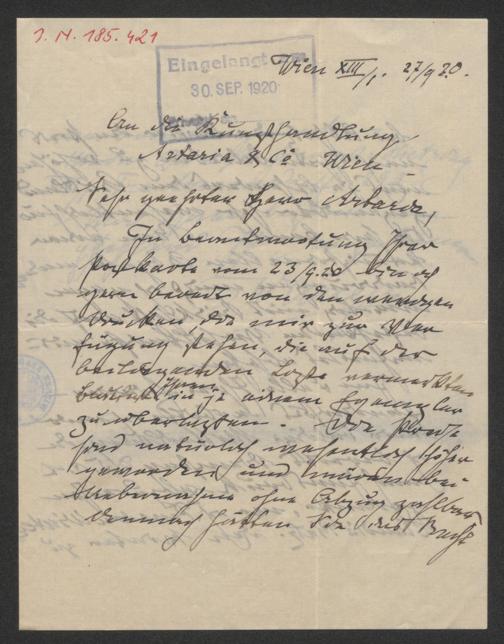 J. N. 185.421
Eingelangt
30. SEP. 1920
Wien XIII/1. 27/9 20.
An die Kunsthandlung
Artaria & Co Wien
Sehr geehrter Herr Artaria,
In Beantwortung Ihrer
Postkarte vom 23/9 20 bin ich
gern bereit von den wenigen
Drucken, die mir zur Ver
fügung stehen, die auf der
beiliegenden Liste vermerkten
Blätter Ihnen in je einem Exemplar
zu überlassen. Die Preise
sind natürlich wesentlich höher
geworden und wären bei
Uebernahme ohne Abzug zahlbar
dennoch hätten Sie das Recht